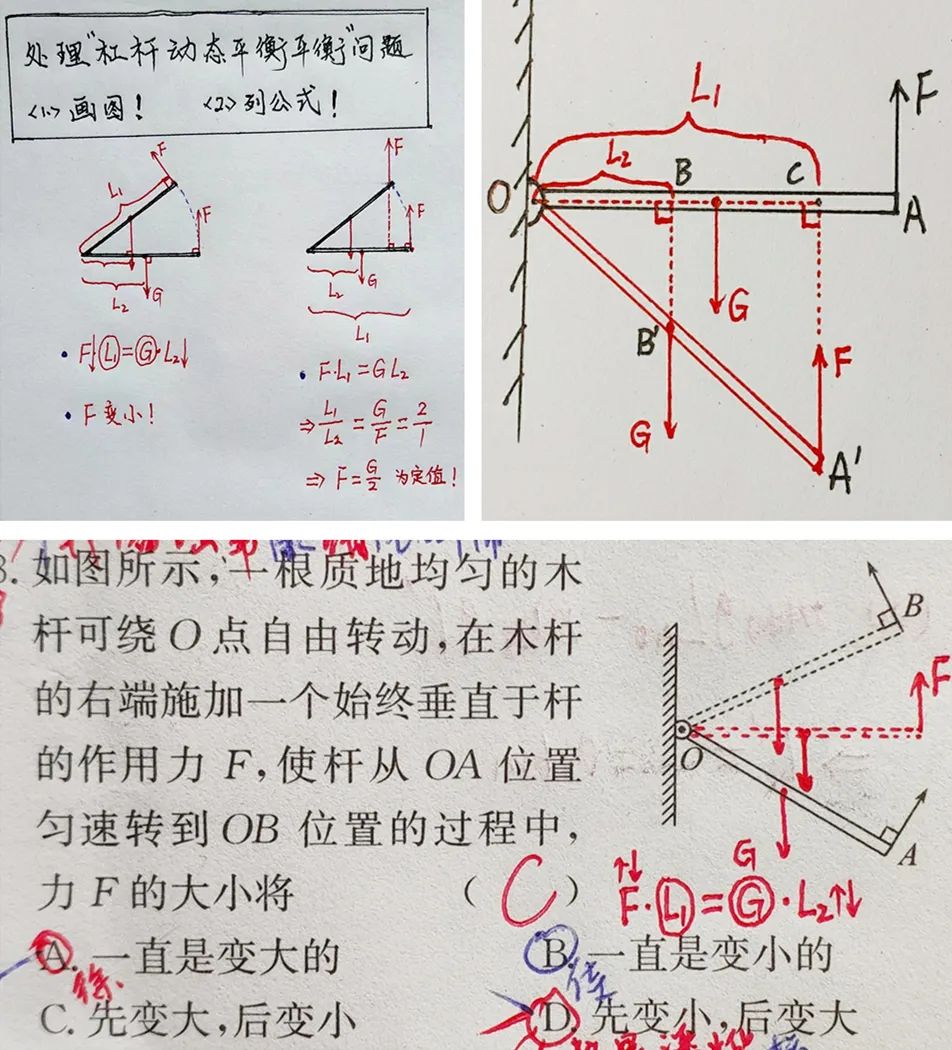 处理"杠杆动态平衡平衡"问题
<1>画图！ <2>列公式！
F
L₁
F
L₂
G
F↓·L₁=G·L₂↓
F变小！
F
F
L₂
G
L₁
F·L₁=GL₂
⇒L₁/L₂=G/F=2/1
⇒F=G/2 为定值！
L₁
F
L₂
B
C
O
A
G
B'
F
G
A'
3. 如图所示，一根质地均匀的木
杆可绕O点自由转动，在木杆
的右端施加一个始终垂直于杆
的作用力F，使杆从OA位置
匀速转到OB位置的过程中，
力F的大小将 （C）
A. 一直是变大的 B. 一直是变小的
徐
C. 先变大，后变小 D. 先变小，后变大
B
F
O
A
G
↑↓
F·L₁=G·L₂↑↓